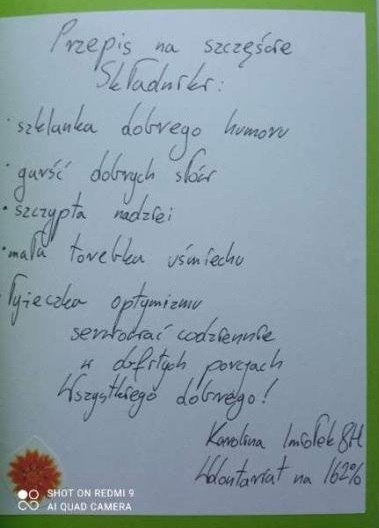 Przepis na szczęście
Składniki:
• szklanka dobrego humoru
• garść dobrych słów
• szczypta nadziei
• mała torebka uśmiechu
• łyżeczka optymizmu
serwować codziennie
w dużych porcjach
Wszystkiego dobrego!
Karolina 8H
Wolontariat na 162%
SHOT ON REDMI 9
AI QUAD CAMERA